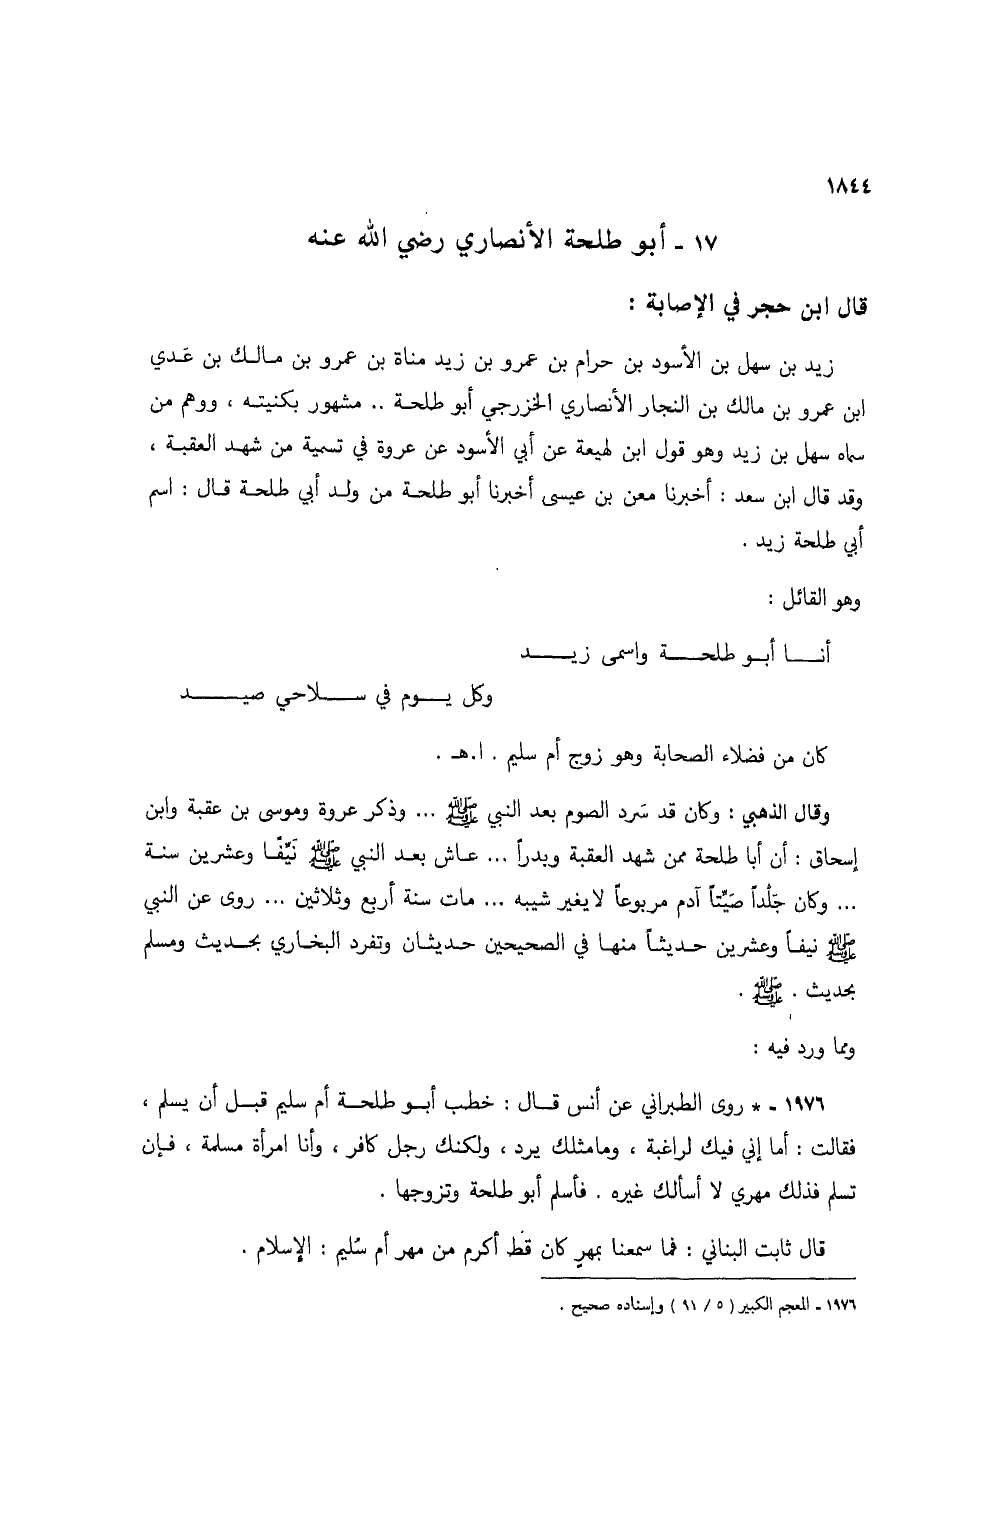 ١٨٤٤
١٧ ـ أبو طلحة الأنصاري رضي الله عنه
قال ابن حجر في الإصابة :
زيد بن سهل بن الأسود بن حرام بن عمرو بن زيد مناة بن عمرو بن مالك بن عَدي
ابن عمرو بن مالك بن النجار الأنصاري الخزرجي أبو طلحة .. مشهور بكنيته ، ووهم من
سماه سهل بن زيد وهو قول ابن لهيعة عن أبي الأسود عن عروة في تسمية من شهد العقبة ،
وقد قال ابن سعد : أخبرنا معن بن عيسى أخبرنا أبو طلحة من ولد أبي طلحة قال : اسم
أبي طلحة زيد .
وهو القائل :
أنا أبو طلحة واسمى زيد
وكل يوم في سلاحي صيد
كان من فضلاء الصحابة وهو زوج أم سليم . ا.هـ .
وقال الذهبي : وكان قد سَرد الصوم بعد النبي ﷺ ... وذكر عروة وموسى بن عقبة وابن
إسحاق : أن أبا طلحة ممن شهد العقبة وبدراً ... عاش بعد النبي ﷺ نَيِّفًا وعشرين سنة
... وكان جَلْداً صَيِّتاً آدم مربوعاً لايغير شيبه ... مات سنة أربع وثلاثين ... روى عن النبي
ﷺ نيفاً وعشرين حديثاً منها في الصحيحين حديثان وتفرد البخاري بحديث ومسلم
بحديث . ﷺ .
ومما ورد فيه :
١٩٧٦ ـ * روى الطبراني عن أنس قال : خطب أبو طلحة أم سليم قبل أن يسلم ،
فقالت : أما إني فيك لراغبة ، ومامثلك يرد ، ولكنك رجل كافر ، وأنا امرأة مسلمة ، فإن
تسلم فذلك مهري لا أسألك غيره . فأسلم أبو طلحة وتزوجها .
قال ثابت البناني : فما سمعنا بمهرٍ كان قط أكرم من مهر أم سُليم : الإسلام .
١٩٧٦ ـ المعجم الكبير ( ٥ / ٩١ ) وإسناده صحيح .